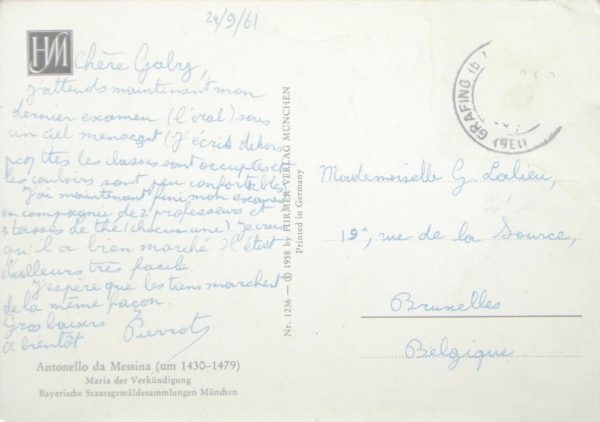 24/9/61
HM
Chère Gaby,
j'attends maintenant mon
dernier examen (l'oral) sous
un ciel menaçant (J'écris dehors
pcq ttes les classes sont occupées et
les couloirs sont peu confortables)
J'ai maintenant fini mon examen
en compagnie de 2 professeurs et
3 tasses de thé (chacun une) Je crois
qu'il a bien marché Il était
d'ailleurs très facile.
J'espère que les tiens marchent
de la même façon.
Gros baisers
à bientôt Pierrot
Antonello da Messina (um 1430-1479)
Maria der Verkündigung
Bayerische Staatsgemäldesammlungen München
Nr. 1236 — © 1958 by HIRMER VERLAG MÜNCHEN
Printed in Germany
(13b) GRAFING (b
Mademoiselle G. Lalieu,
19a, rue de la Source,
Bruxelles
Belgique